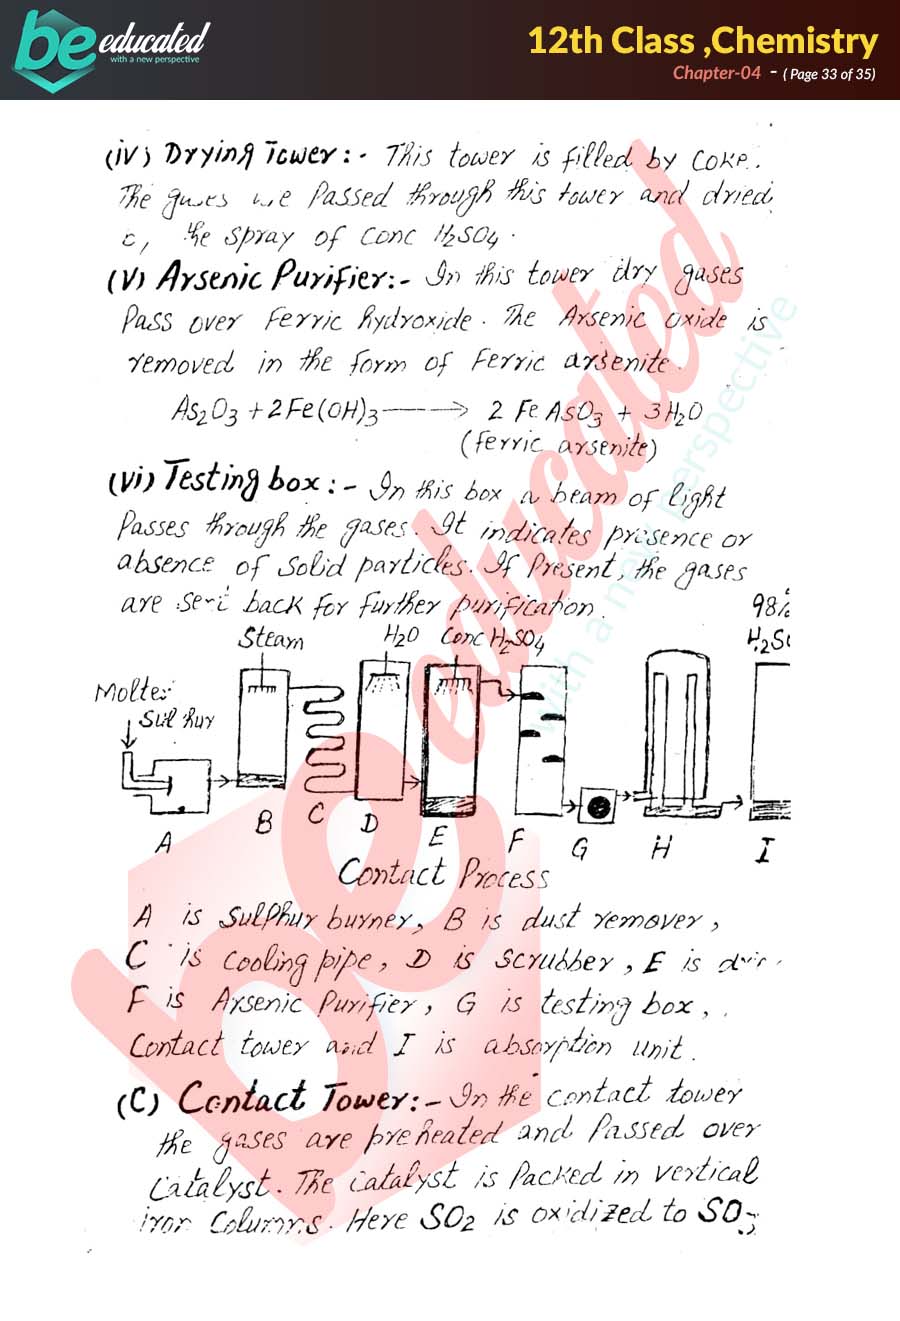 be educated
with a new perspective
12th Class ,Chemistry
Chapter-04 - ( Page 33 of 35)
(iv) Drying Tower:- This tower is filled by coke.
The gases are Passed through this tower and dried
the spray of conc H2SO4.
(v) Arsenic Purifier:- In this tower dry gases
Pass over Ferric hydroxide. The Arsenic oxide is
removed in the form of Ferric arsenite.
As2O3 + 2Fe(OH)3 ⟶ 2 FeAsO3 + 3H2O
(Ferric arsenite)
(vi) Testing box:- In this box a beam of light
Passes through the gases. It indicates presence or
absence of solid particles. If Present, the gases
are sent back for further purification.
98%
Steam H2O Conc H2SO4 H2SO
Molten
Sulphur
A B C D E F G H I
Contact Process
A is Sulphur burner, B is dust remover,
C is cooling pipe, D is scrubber, E is
F is Arsenic Purifier, G is testing box,
Contact tower and I is absorption unit.
(C) Contact Tower:- In the contact tower
the gases are preheated and Passed over
Catalyst. The catalyst is Packed in vertical
iron Columns. Here SO2 is oxidized to SO3
be educated
with a new perspective